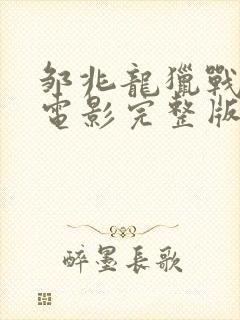 邹兆龍獵戰
電影完整版
醉墨長歌